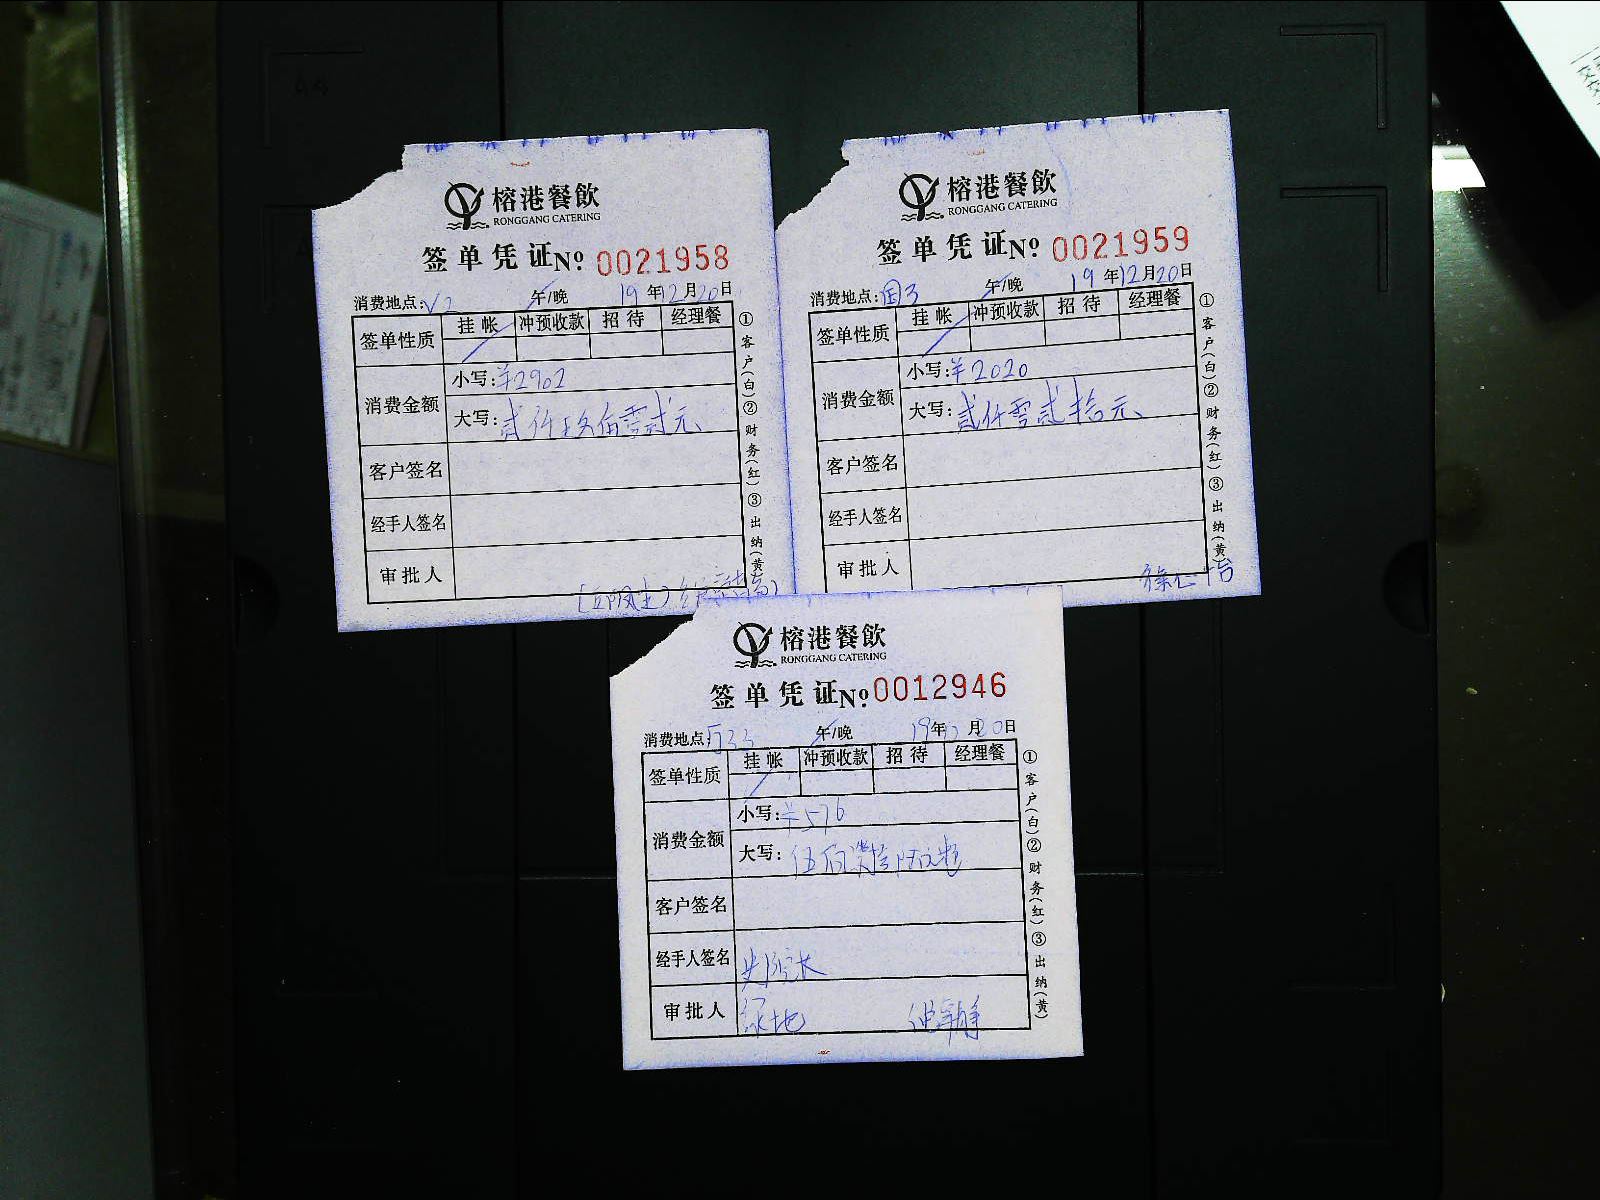 榕港餐飲
RONGGANG CATERING
签单凭证No 0021958
消费地点: V2 午/晚 19年12月20日
签单性质 挂帐 冲预收款 招待 经理餐
消费金额 小写:¥2902
大写:贰仟玖佰零贰元
客户签名
经手人签名
审批人
①客户(白)②财务(红)③出纳(黄)
榕港餐飲
RONGGANG CATERING
签单凭证No 0021959
消费地点: 国3 午/晚 19年12月20日
签单性质 挂帐 冲预收款 招待 经理餐
消费金额 小写:¥2020
大写:贰仟零贰拾元
客户签名
经手人签名
审批人
①客户(白)②财务(红)③出纳(黄)
榕港餐飲
RONGGANG CATERING
签单凭证No 0012946
消费地点: 午/晚 19年 月20日
签单性质 挂帐 冲预收款 招待 经理餐
消费金额 小写:¥576
大写:伍佰柒拾陆元整
客户签名
经手人签名 史院长
审批人 绿地
①客户(白)②财务(红)③出纳(黄)